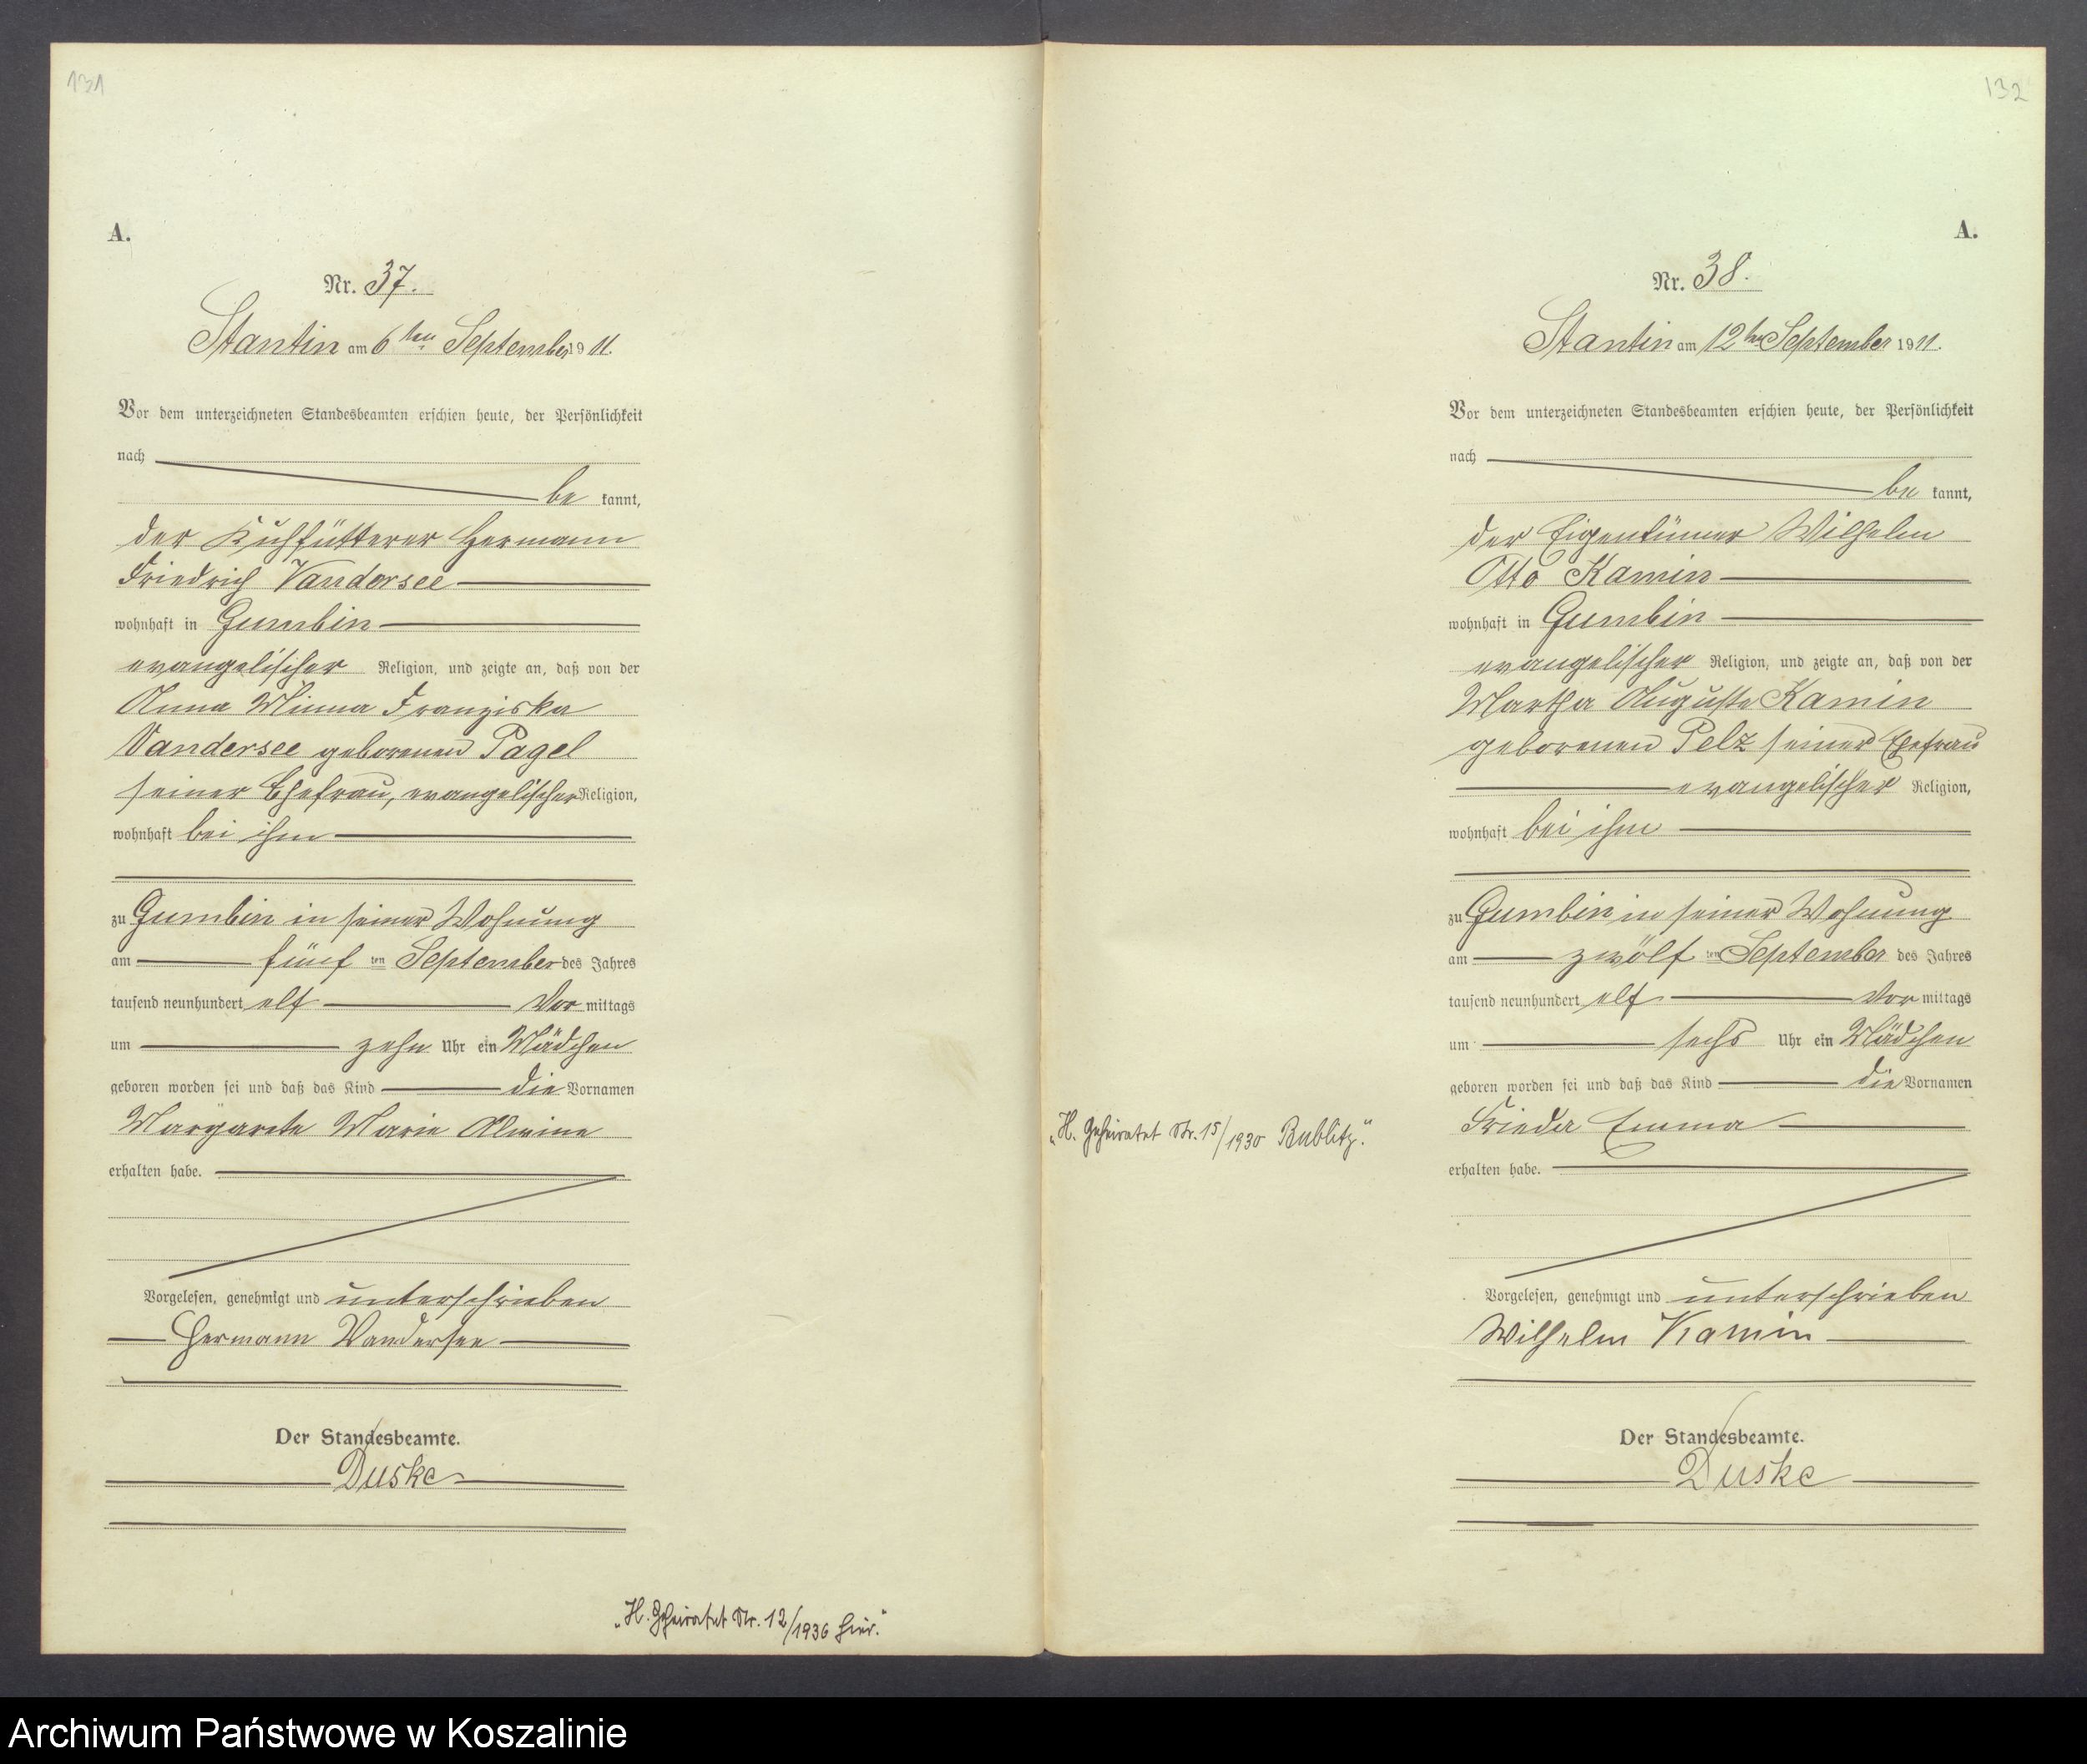 131
A.
Nr. 37.
Stantin am 6ten September 1911.
Vor dem unterzeichneten Standesbeamten erschien heute, der Persönlichkeit
nach
be kannt,
der Kuhfütterer Hermann
Friedrich Vandersee
wohnhaft in Gumbin
evangelischer Religion, und zeigte an, daß von der
Anna Minna Franziska
Vandersee geborenen Pagel
seiner Ehefrau, evangelischer Religion,
wohnhaft bei ihm
zu Gumbin in seiner Wohnung
am fünf ten September des Jahres
tausend neunhundert elf Vor mittags
um zehn Uhr ein Mädchen
geboren worden sei und daß das Kind die Vornamen
Margarete Marie Alwine
erhalten habe.
Vorgelesen, genehmigt und unterschrieben
Hermann Vandersee
Der Standesbeamte.
Duske
„H. Geheiratet Nr. 12/1936 hier.“
132
A.
Nr. 38.
Stantin am 12ten September 1911.
Vor dem unterzeichneten Standesbeamten erschien heute, der Persönlichkeit
nach
be kannt,
der Eigentümer Wilhelm
Otto Kamin
wohnhaft in Gumbin
evangelischer Religion, und zeigte an, daß von der
Martha Auguste Kamin
geborenen Pelz seiner Ehefrau
evangelischer Religion,
wohnhaft bei ihm
zu Gumbin in seiner Wohnung
am zwölf ten September des Jahres
tausend neunhundert elf Vor mittags
um sechs Uhr ein Mädchen
geboren worden sei und daß das Kind die Vornamen
Frieda Emma
„H. Geheiratet Nr. 15/1930 Bublitz.“
erhalten habe.
Vorgelesen, genehmigt und unterschrieben
Wilhelm Kamin
Der Standesbeamte.
Duske
Archiwum Państwowe w Koszalinie